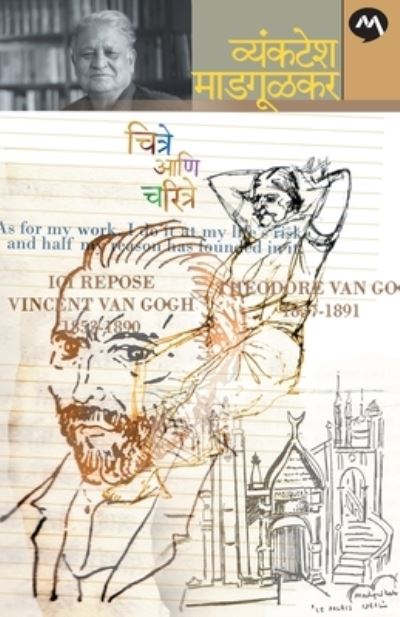 व्यंकटेश
माडगूळकर
चित्रे
आणि
चरित्रे
As for my work, I do it at my life's risk
and half my reason has founded in it
ICI REPOSE
VINCENT VAN GOGH
1853-1890
THEODORE VAN GO
1857-1891
"LE PALAIS IDEAL"